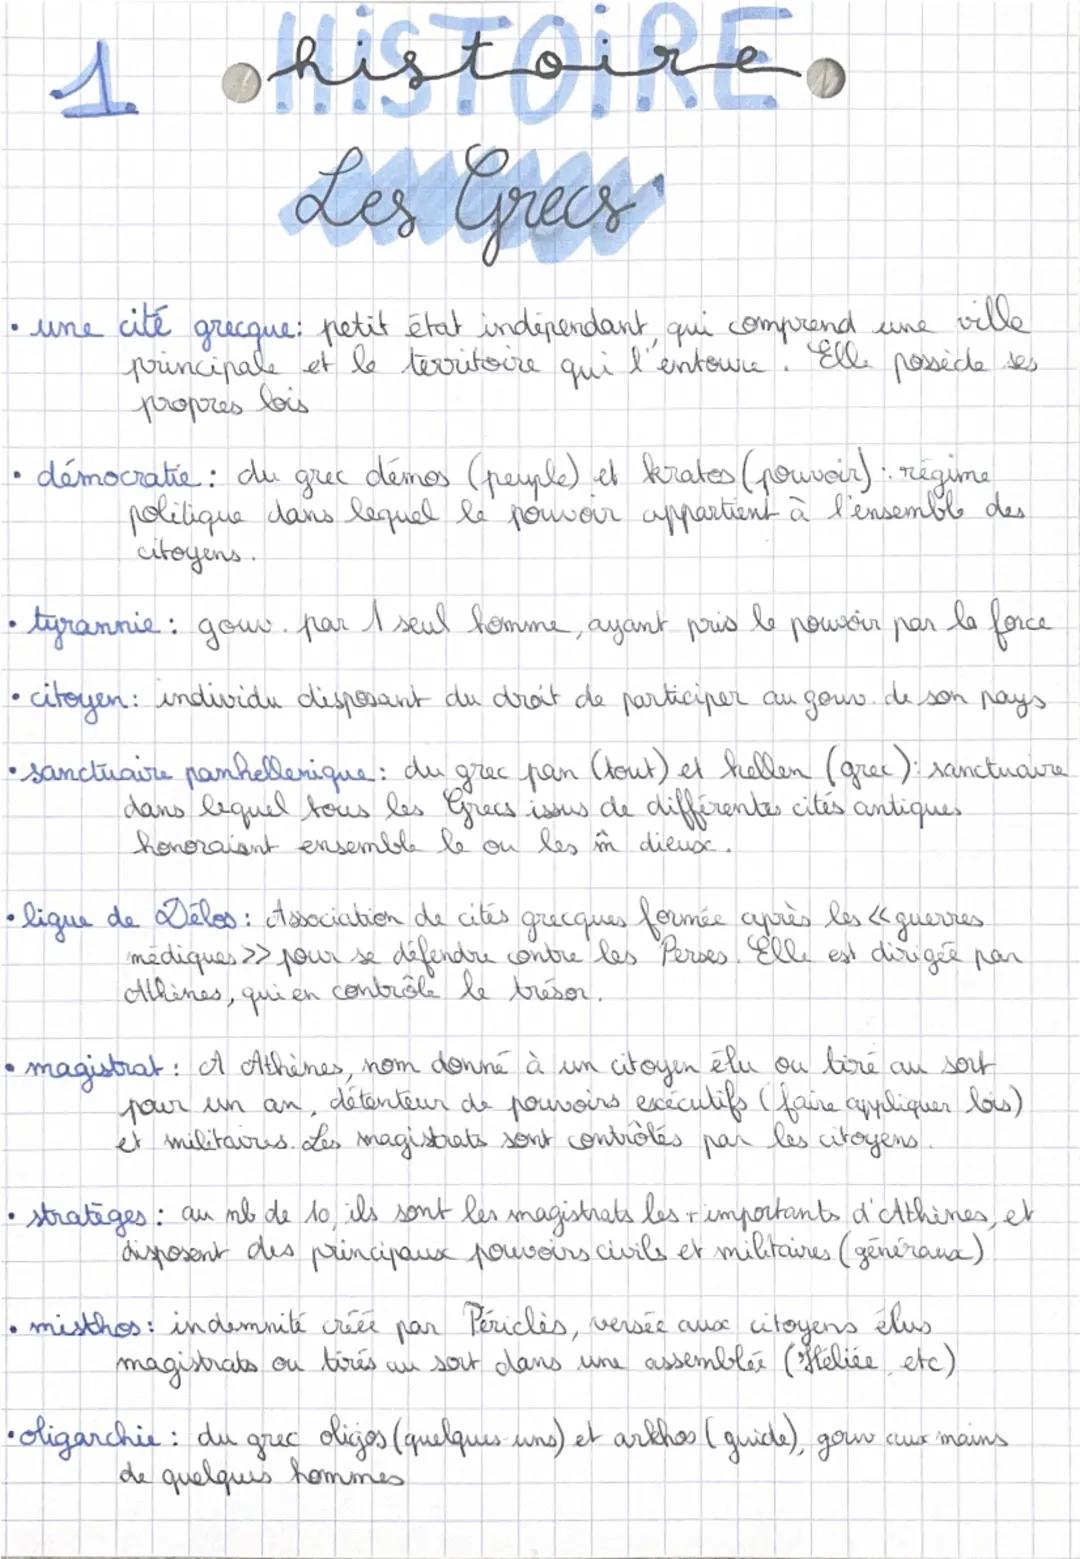 1 HiSTOiRE
histoire
Les Grecs
• une cité grecque : petit état indépendant, qui comprend une ville
principale et le territoire qui l'entoure. Elle possède ses
propres lois
• démocratie : du grec démos (peuple) et kratos (pouvoir) : régime
politique dans lequel le pouvoir appartient à l'ensemble des
citoyens.
• tyrannie : gouv. par 1 seul homme, ayant pris le pouvoir par la force
• citoyen : individu disposant du droit de participer au gouv. de son pays
• sanctuaire panhellenique : du grec pan (tout) et hellen (grec) : sanctuaire
dans lequel tous les Grecs issus de différentes cités antiques
honoraient ensemble le ou les m̂ dieux.
• ligue de Délos : Association de cités grecques formée après les << guerres
médiques >> pour se défendre contre les Perses. Elle est dirigée par
Athènes, qui en contrôle le trésor.
• magistrat : A Athènes, nom donné à un citoyen élu ou tiré au sort
pour un an, détenteur de pouvoirs exécutifs (faire appliquer lois)
et militaires. Les magistrats sont contrôlés par les citoyens.
• stratèges : au nb de 10, ils sont les magistrats les + importants d'Athènes, et
disposent des principaux pouvoirs civils et militaires (généraux)
• misthos : indemnité créé par Périclès, versée aux citoyens élus
magistrats ou tirés au sort dans une assemblée (Héliée, etc)
• oligarchie : du grec oligos (quelques-uns) et arkhos (guide), gouv aux mains
de quelques hommes